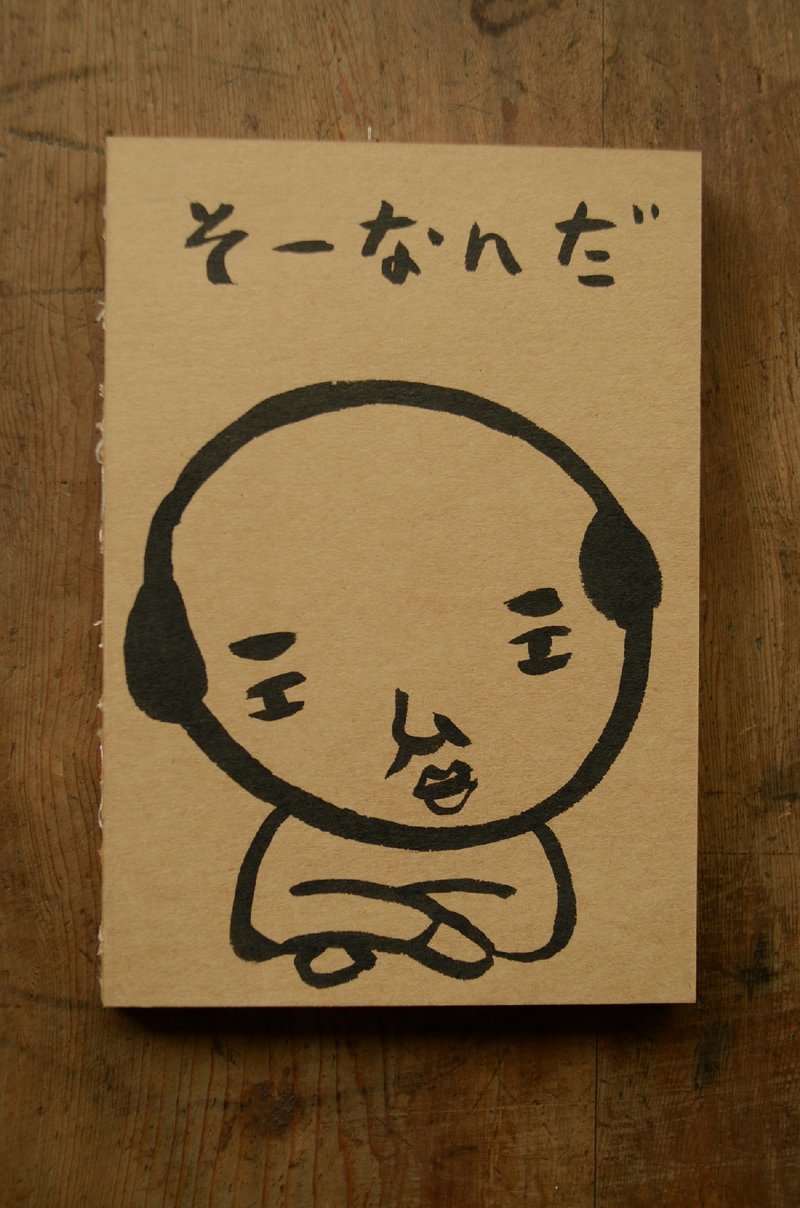 そーなんだ